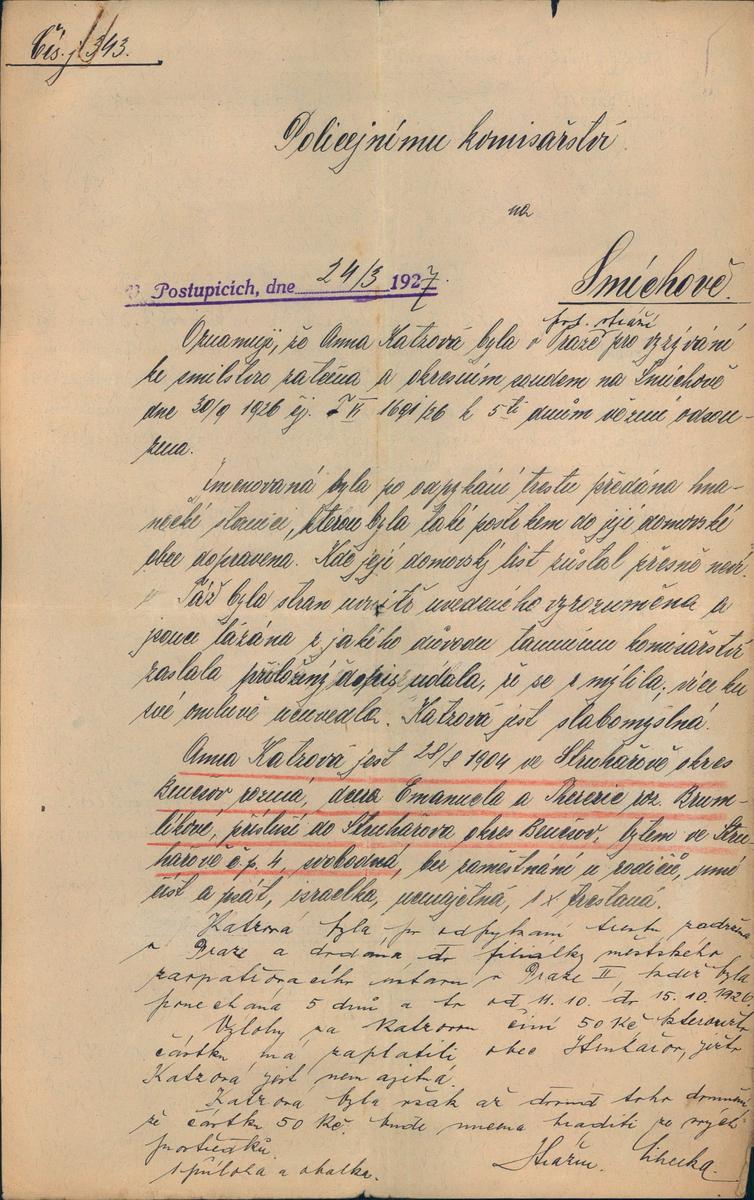 Čís. j. 343.
Policejnímu komisařství
na
Postupicích, dne 24/3 1927.
Smíchově.
pol. stráží
Oznamuji, že Anna Katzová byla v Praze pro vyzývání
ke smilstvu zatčena a okresním soudem na Smíchově
dne 30/9 1926 čj. T II 1691/26 k 5ti dnům vězení odsou-
zena.
Jmenovaná byla po odpykání trestu předána hna-
necké stanici, kterou byla také postrkem do její domovské
obce dopravena. Kde její domovský list zůstal přesně neví
Táž byla stran uvnitř uvedeného vyrozuměna a
jsouc tázána z jakého důvodu tamnímu komisařství
zaslala přiložený dopis udala, že se zmýlila, více ku
své omluvě neuvedla. Katzová jest slabomyslná.
Anna Katzová jest 28/8 1904 ve Struhařově okres
Benešov rozená, dcera Emanuela a Therezie roz. Brum-
líkové, přísluší do Struhařova okres Benešov, bytem ve Stru-
hařově č.p. 4, svobodná, bez zaměstnání u rodičů, umí
číst a psát, izraelka, nemajetná, 1x trestaná.
Katzová byla po odpykání trestu zadržena
v Praze a dodána do filiálky městského
zaopatřovacího ústavu v Praze II, kdež byla
ponechaná 5 dnů a to od 11.10. do 15.10.1926.
Výlohy za Katzovou činí 50 Kč kteroužto
částku má zaplatiti obec Struhařov, ježto
Katzová jest nemajetná.
Katzová byla však až dosud toho domnění
že částku 50 Kč. bude muset hraditi ze svých
prostředků.
1 příloha a obálka.
Strážm.